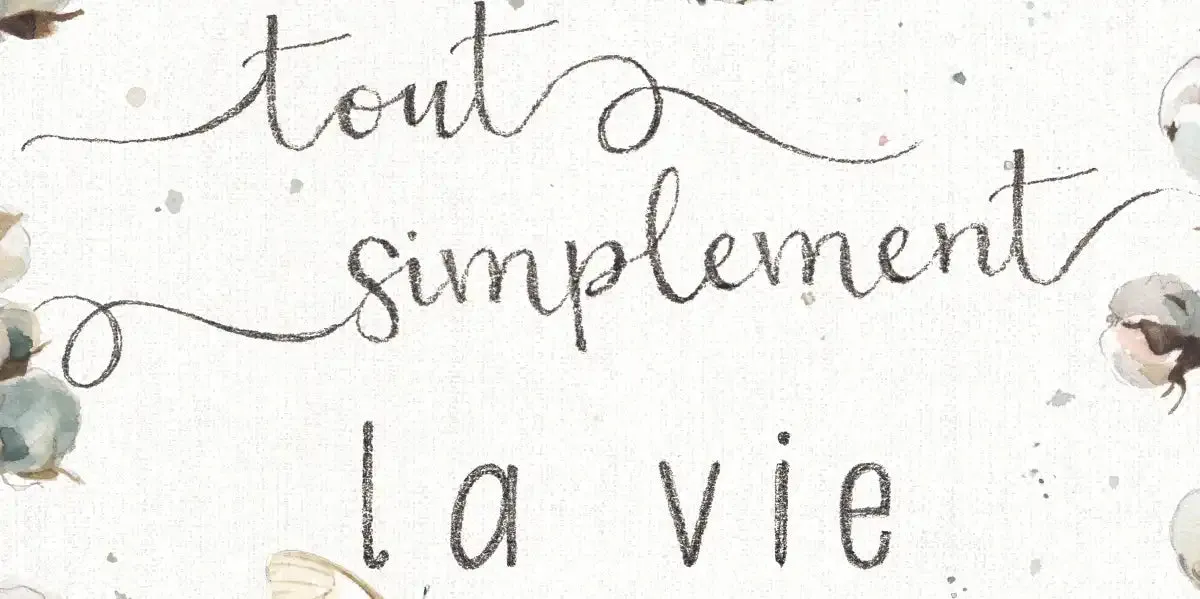 tout
simplement
la vie